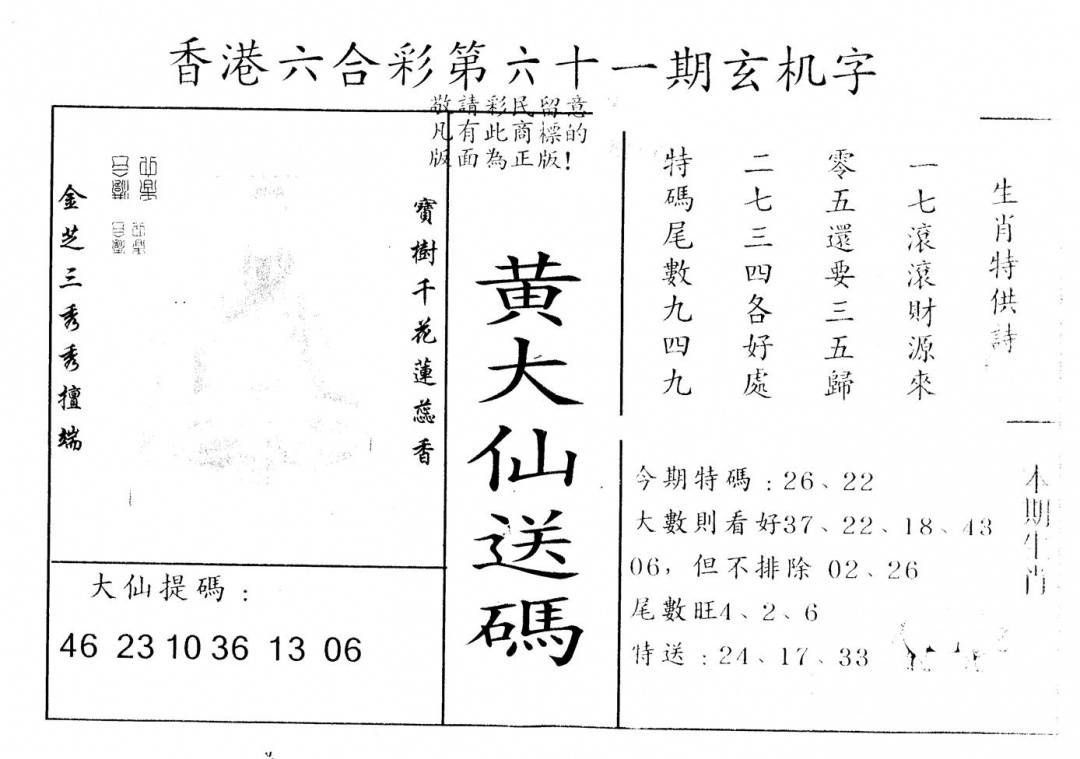 香港六合彩第六十一期玄机字
敬請彩民留意
凡有此商標的
版面為正版！
生肖特供詩
一七滾滾財源來
零五還要三五歸
二七三四各好處
特碼尾數九四九
寶樹千花蓮蕊香
金芝三秀秀擅端
黄大仙送碼
本期生肖
今期特碼：26、22
大數則看好37、22、18、43
06，但不排除 02、26
尾數旺4、2、6
特送：24、17、33
大仙提碼：
46 23 10 36 13 06